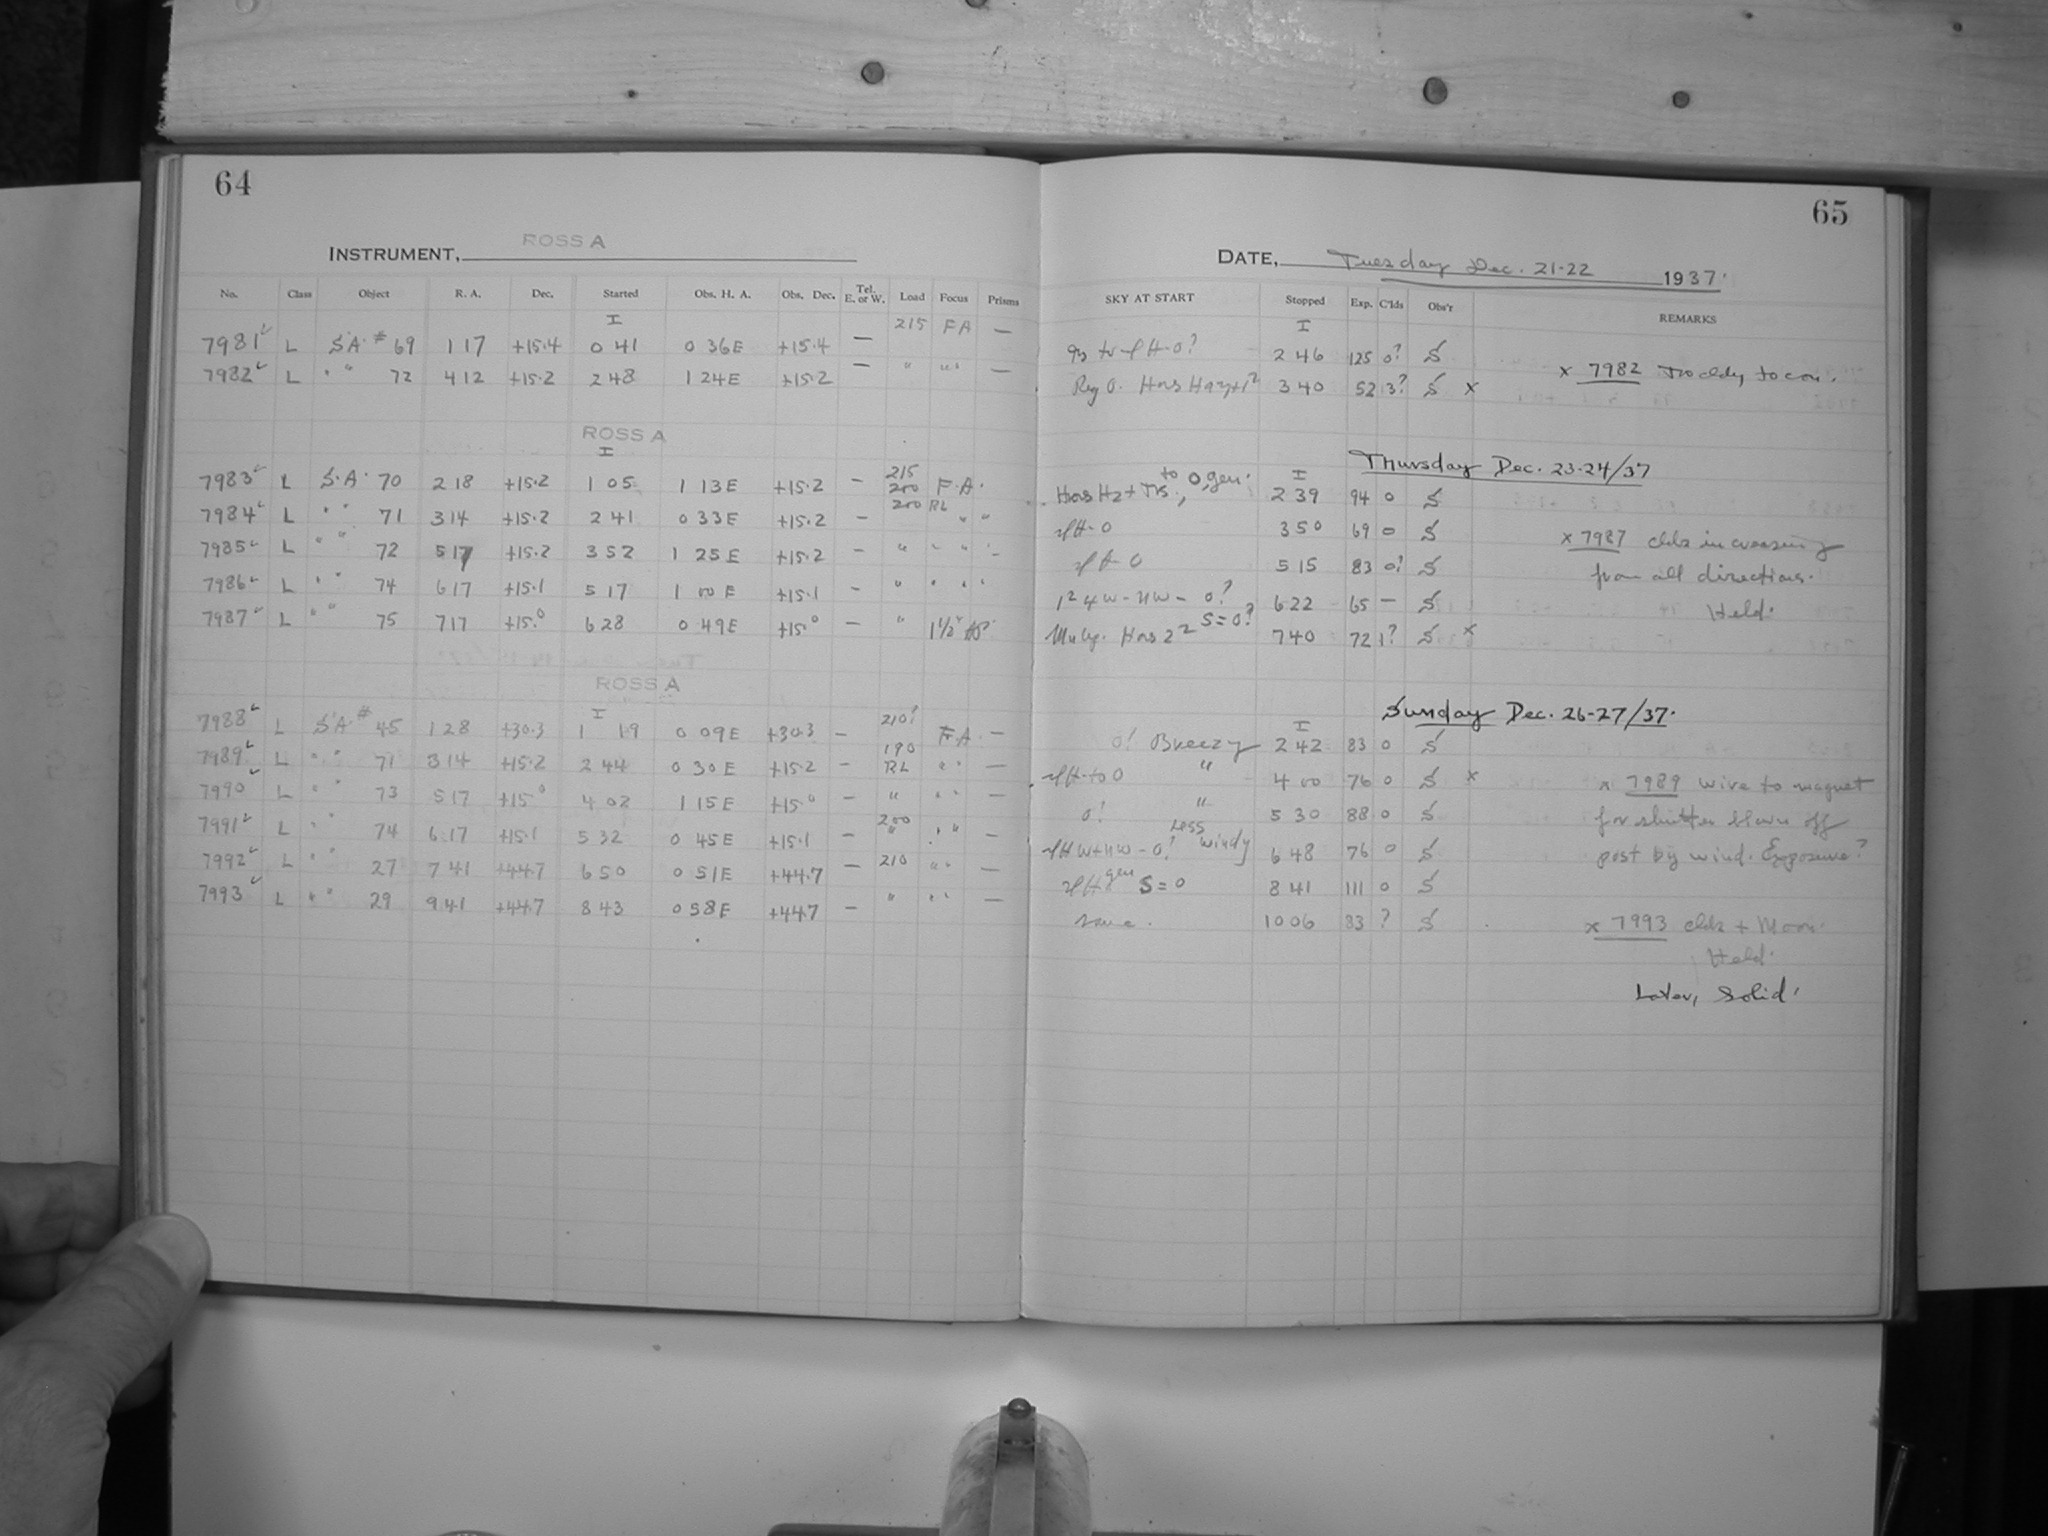 64
INSTRUMENT, ROSS A
No. Class Object R. A. Dec. Started Obs. H. A. Obs. Dec. Tel. E. or W. Load Focus Prisms
I
7981 L S.A. # 69 1 17 +15.4 0 41 0 36E +15.4 — 215 F A —
7982 L " " 72 4 12 +15.2 2 48 1 24E +15.2 — " " " —
ROSS A
I
7983 L S.A. 70 2 18 +15.2 1 05 1 13E +15.2 — 215 200 F.A.
7984 L " " 71 3 14 +15.2 2 41 0 33E +15.2 — 200 RL " "
7985 L " " 72 5 17 +15.2 3 52 1 25E +15.2 — " " " " -
7986 L " " 74 6 17 +15.1 5 17 1 00 E +15.1 — " " " "
7987 L " " 75 7 17 +15.0 6 28 0 49E +15.0 — " 1 1/2"
ROSS A
I
7988 L S.A. # 45 1 28 +30.3 1 19 0 09E +30.3 — 210? F.A. —
7989 L " " 71 3 14 +15.2 2 44 0 30E +15.2 — 190 RL " " —
7990 L " " 73 5 17 +15.0 4 02 1 15E +15.0 — " " " —
7991 L " " 74 6 17 +15.1 5 32 0 45E +15.1 — 200 " " " —
7992 L " " 27 7 41 +44.7 6 50 0 51E +44.7 — 210 " " —
7993 L " " 29 9 41 +44.7 8 43 0 58E +44.7 — " " " —
65
DATE, Tuesday Dec. 21-22 1937.
SKY AT START Stopped Exp. C'lds Obs'r REMARKS
I
2 46 125 0? S
Hors Hazy+1² 3 40 52 3? S x
x 7982 Too cldy to con.
Thursday Dec. 23-24/37
I
Hors Hz + to 0, gen. 2 39 94 0 S
0 3 50 69 0 S
0 5 15 83 0? S
1² 4 W-NW- 0? 6 22 65 — S
Hors 2² S=0? 7 40 72 1? S x
x 7987 clds increasing
from all directions.
Held.
Sunday Dec. 26-27/37.
I
0! Breezy 2 42 83 0 S
to 0 " 4 00 76 0 S x
0! " 5 30 88 0 S
W+NW-0! Less windy 6 48 76 0 S
gen S=0 8 41 111 0 S
same. 10 06 83 ? S
x 7989 wire to magnet
for shutter blown off
post by wind. Exposure?
x 7993 clds + Moon.
Held.
Later, Solid.